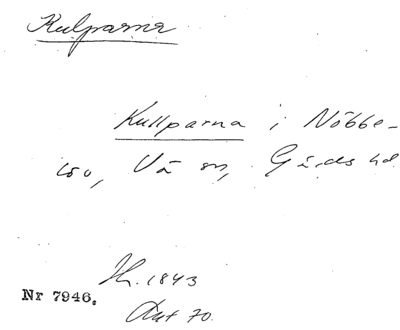 Kulparna
Kullparna i Nöbbe-
löv, Vä sn, Gärds hd
Nr 7946.
1843
70.